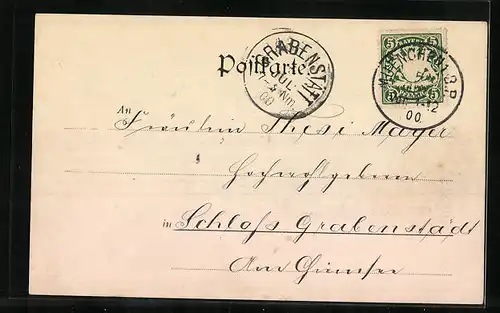 Postkarte
GRABENSTÄTT
JUL.
00
BAYERN
5 5
5 5
PFENNIG
MUENCHEN 2. B.P.
00.
An Fräulein Thesi Mayer
Hochwohlgeboren
in Schloss Grabenstädt
Am Chiemsee